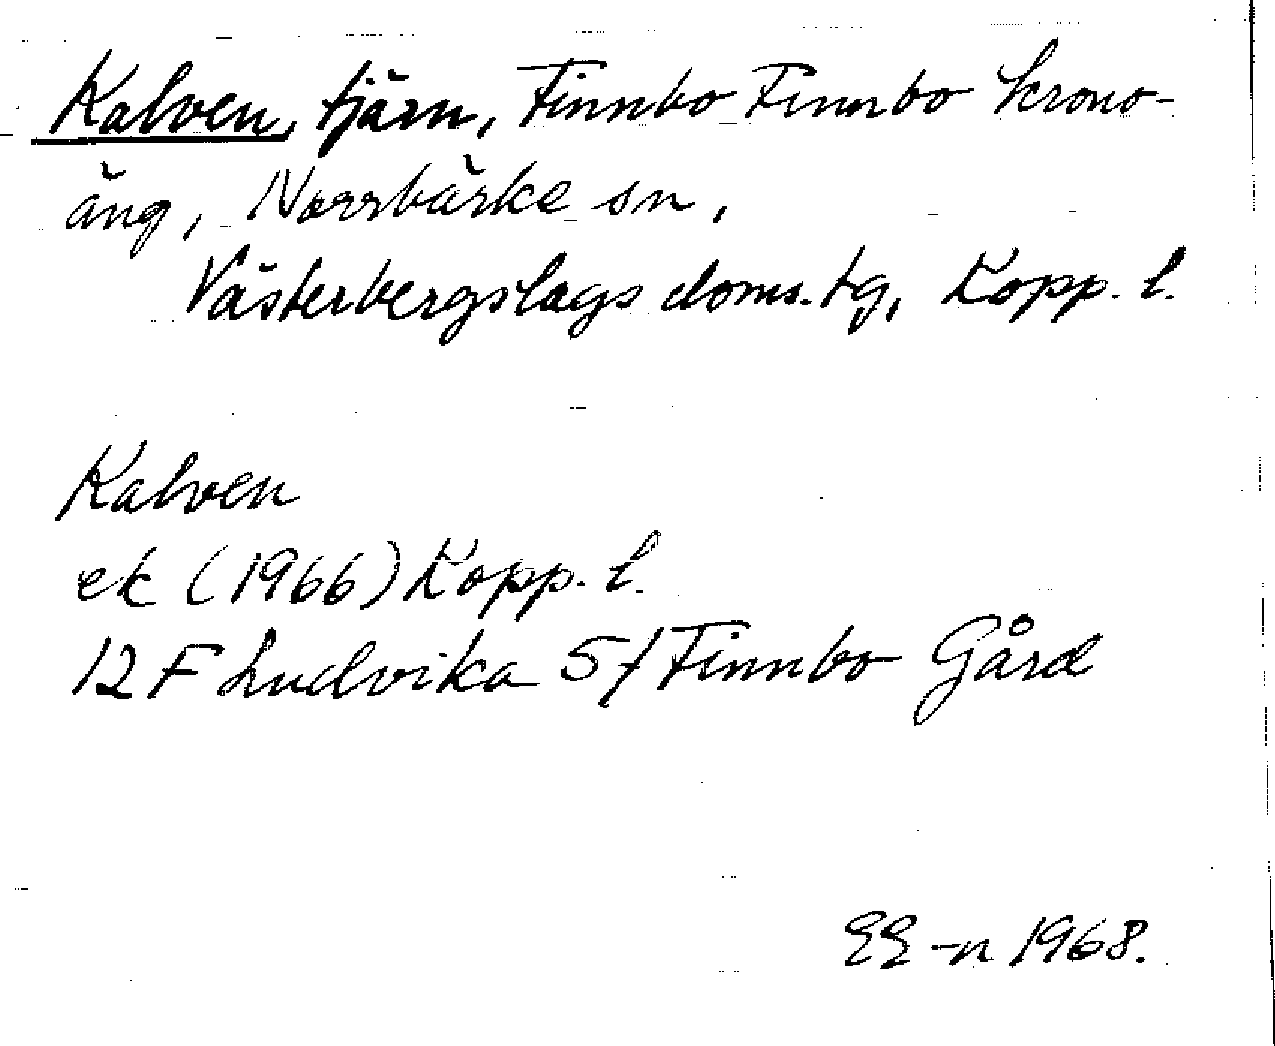 Kalven, tjärn, Finnbo Finnbo krono-
äng, Norrbärke sn,
Västerbergslags doms. tg, Kopp. l.
Kalven
ek (1966) Kopp. l.
12 F Ludvika 5 f Finnbo Gård
EE-n 1968.